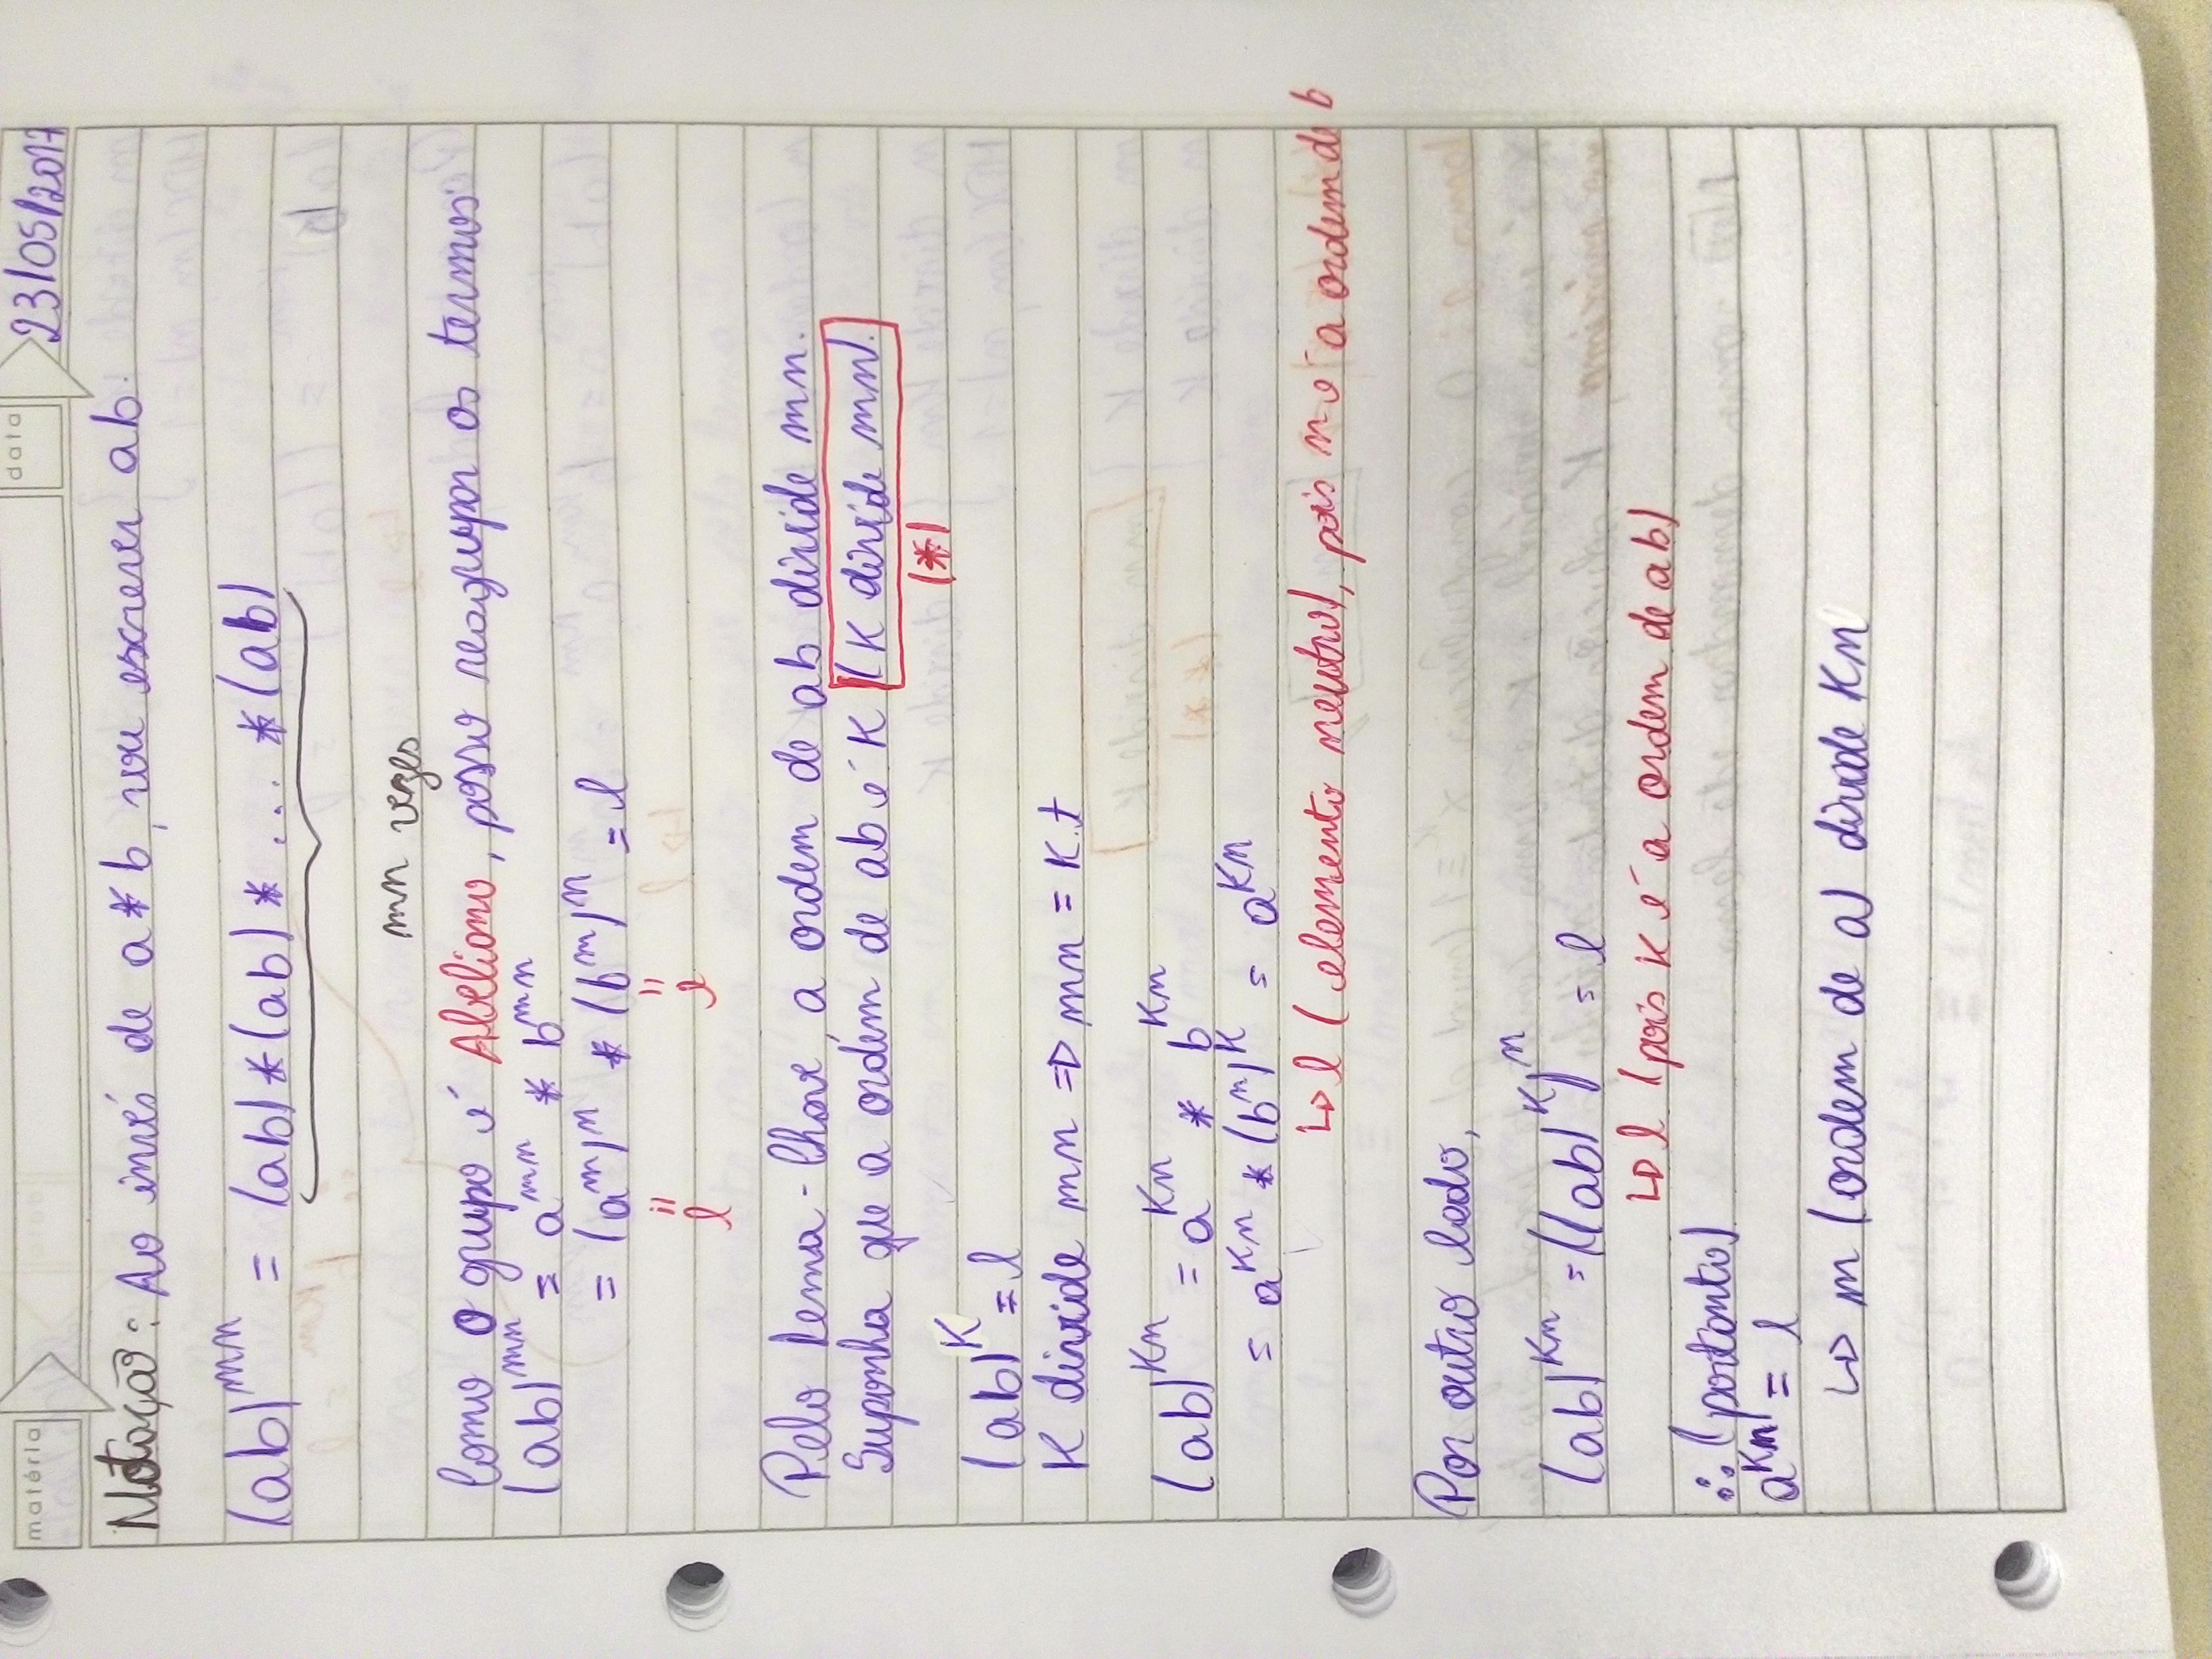 matéria
data
23/05/2017
Notação: Ao invés de a * b, vou escrever ab.
(ab)^mn = (ab) * (ab) * ... * (ab)
mn vezes
Como o grupo é Abeliano, posso reagrupar os termos:
(ab)^mn = a^mn * b^mn
= (a^m)^n * (b^m)^n = e
= =
e e
Pelo Lema-Chave, a ordem de ab divide mn.
Suponha que a ordem de ab é K (K divide mn).
(*)
(ab)^K = e
K divide mn => mn = K.t
(ab)^Kn = a^Kn * b^Kn
= a^Kn * (b^n)^K = a^Kn
↳ e (elemento neutro), pois n é a ordem de b
Por outro lado,
(ab)^Kn = ((ab)^K)^n = e
↳ e (pois K é a ordem de ab)
∴ (portanto)
a^Kn = e
↳ m (ordem de a) divide Kn